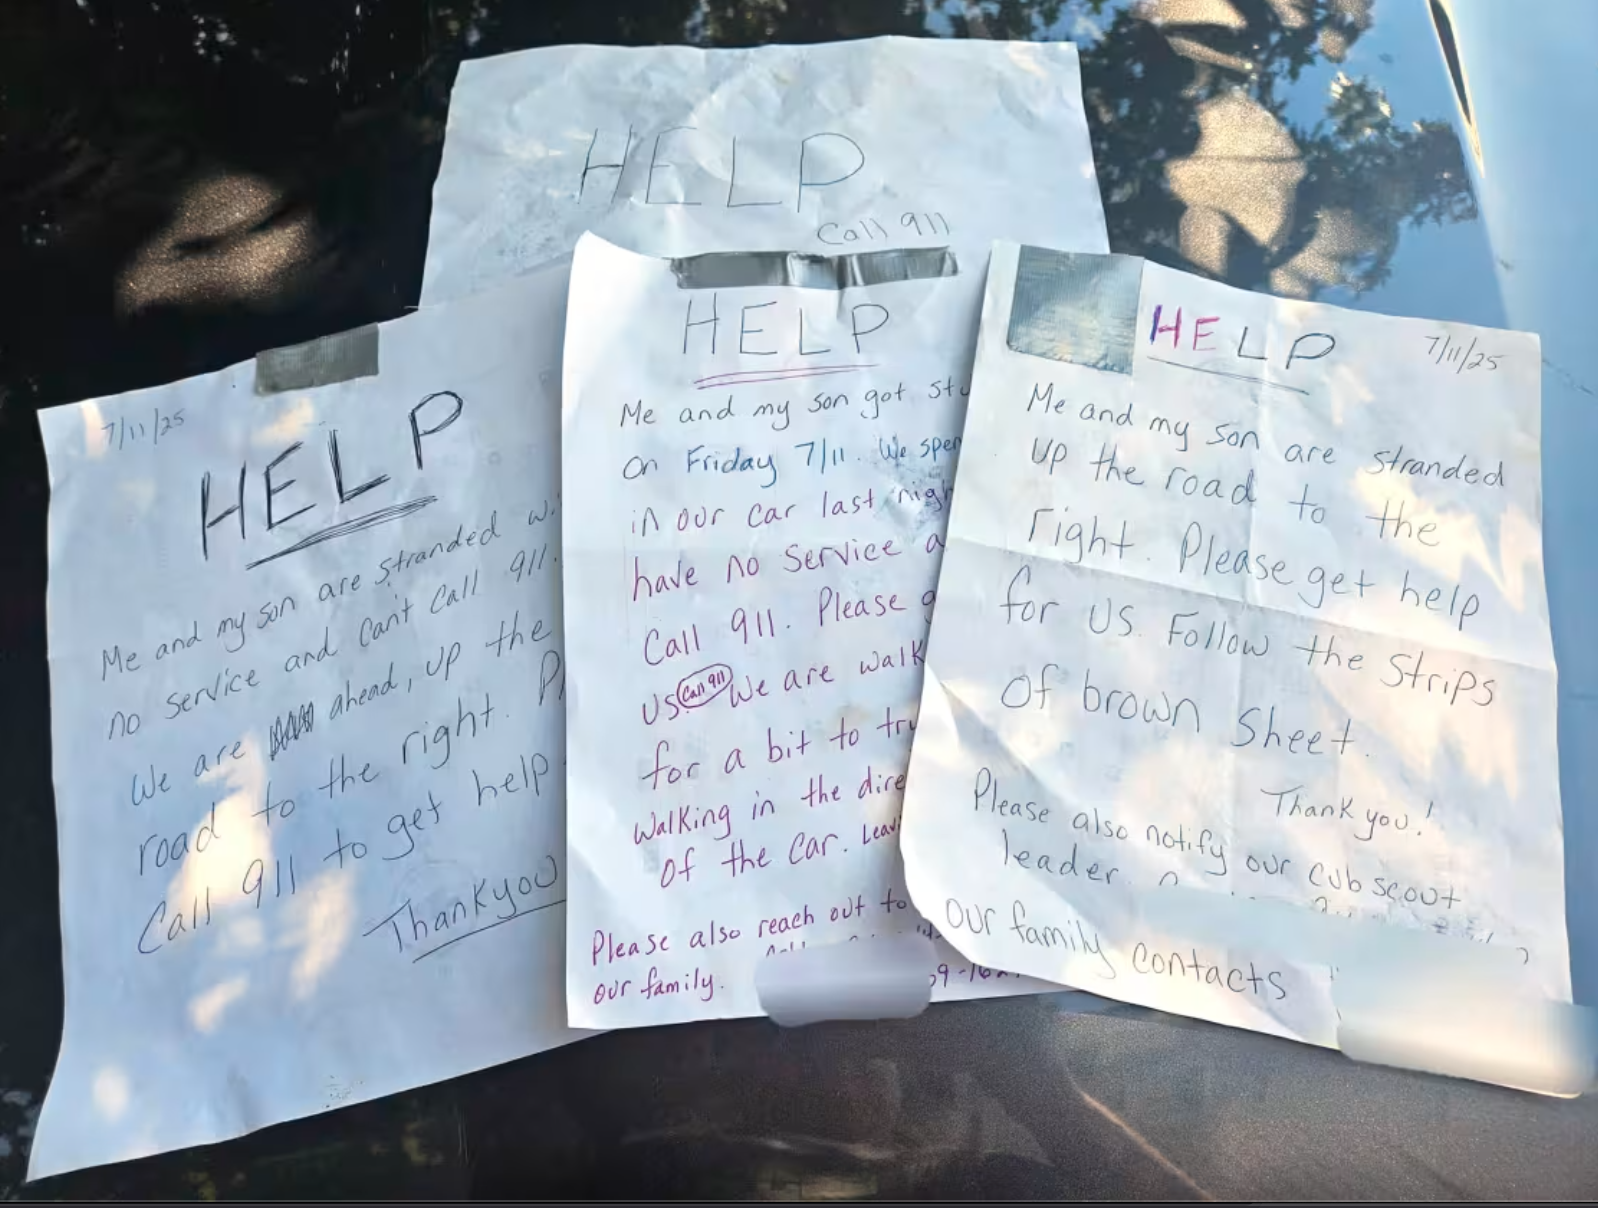 HELP
Call 911
7/11/25
HELP
Me and my son are stranded
no service and can't call 911.
We are ahead, up the
road to the right.
Call 911 to get help
Thankyou
HELP
Me and my son got
on Friday 7/11. We
in our car last
have no service
Call 911. Please
us. Call 911 We are
for a bit to
Walking in the
of the car.
Please also reach out to
our family.
HELP
7/11/25
Me and my son are stranded
up the road to the
right. Please get help
for us. Follow the Strips
of brown Sheet.
Thank you!
Please also notify our cub scout
leader.
our family contacts